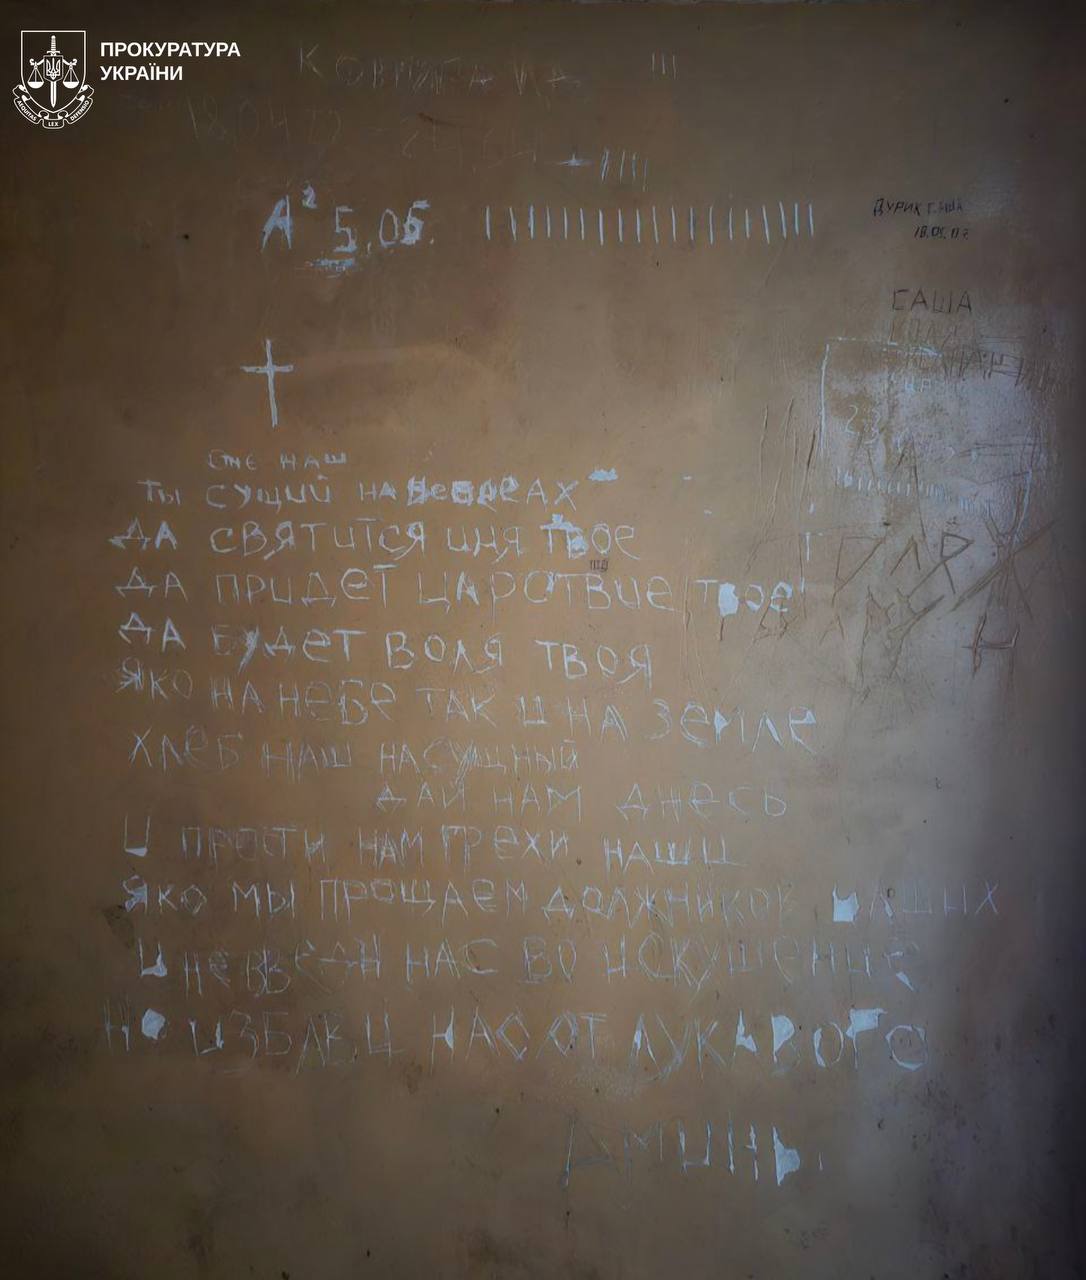 ПРОКУРАТУРА
УКРАЇНИ
AEQUITAS LEX DEFENSIO
18.04.22
А² 5.05.
ДУРИК САША
18.05.
САША
23
ОТЧЕ НАШ
ТЫ СУЩИЙ НА НЕБЕСАХ
ДА СВЯТИТСЯ ИМЯ ТВОЕ
ДА ПРИДЕТ ЦАРСТВИЕ ТВОЕ
ДА БУДЕТ ВОЛЯ ТВОЯ
ЯКО НА НЕБЕ ТАК И НА ЗЕМЛЕ
ХЛЕБ НАШ НАСУЩНЫЙ
ДАЙ НАМ ДНЕСЬ
И ПРОСТИ НАМ ГРЕХИ НАШИ
ЯКО МЫ ПРОЩАЕМ ДОЛЖНИКОВ НАШЫХ
И НЕ ВВЕДИ НАС ВО ИСКУШЕНИЕ
НО ИЗБАВИ НАС ОТ ЛУКАВОГО
АМИНЬ.